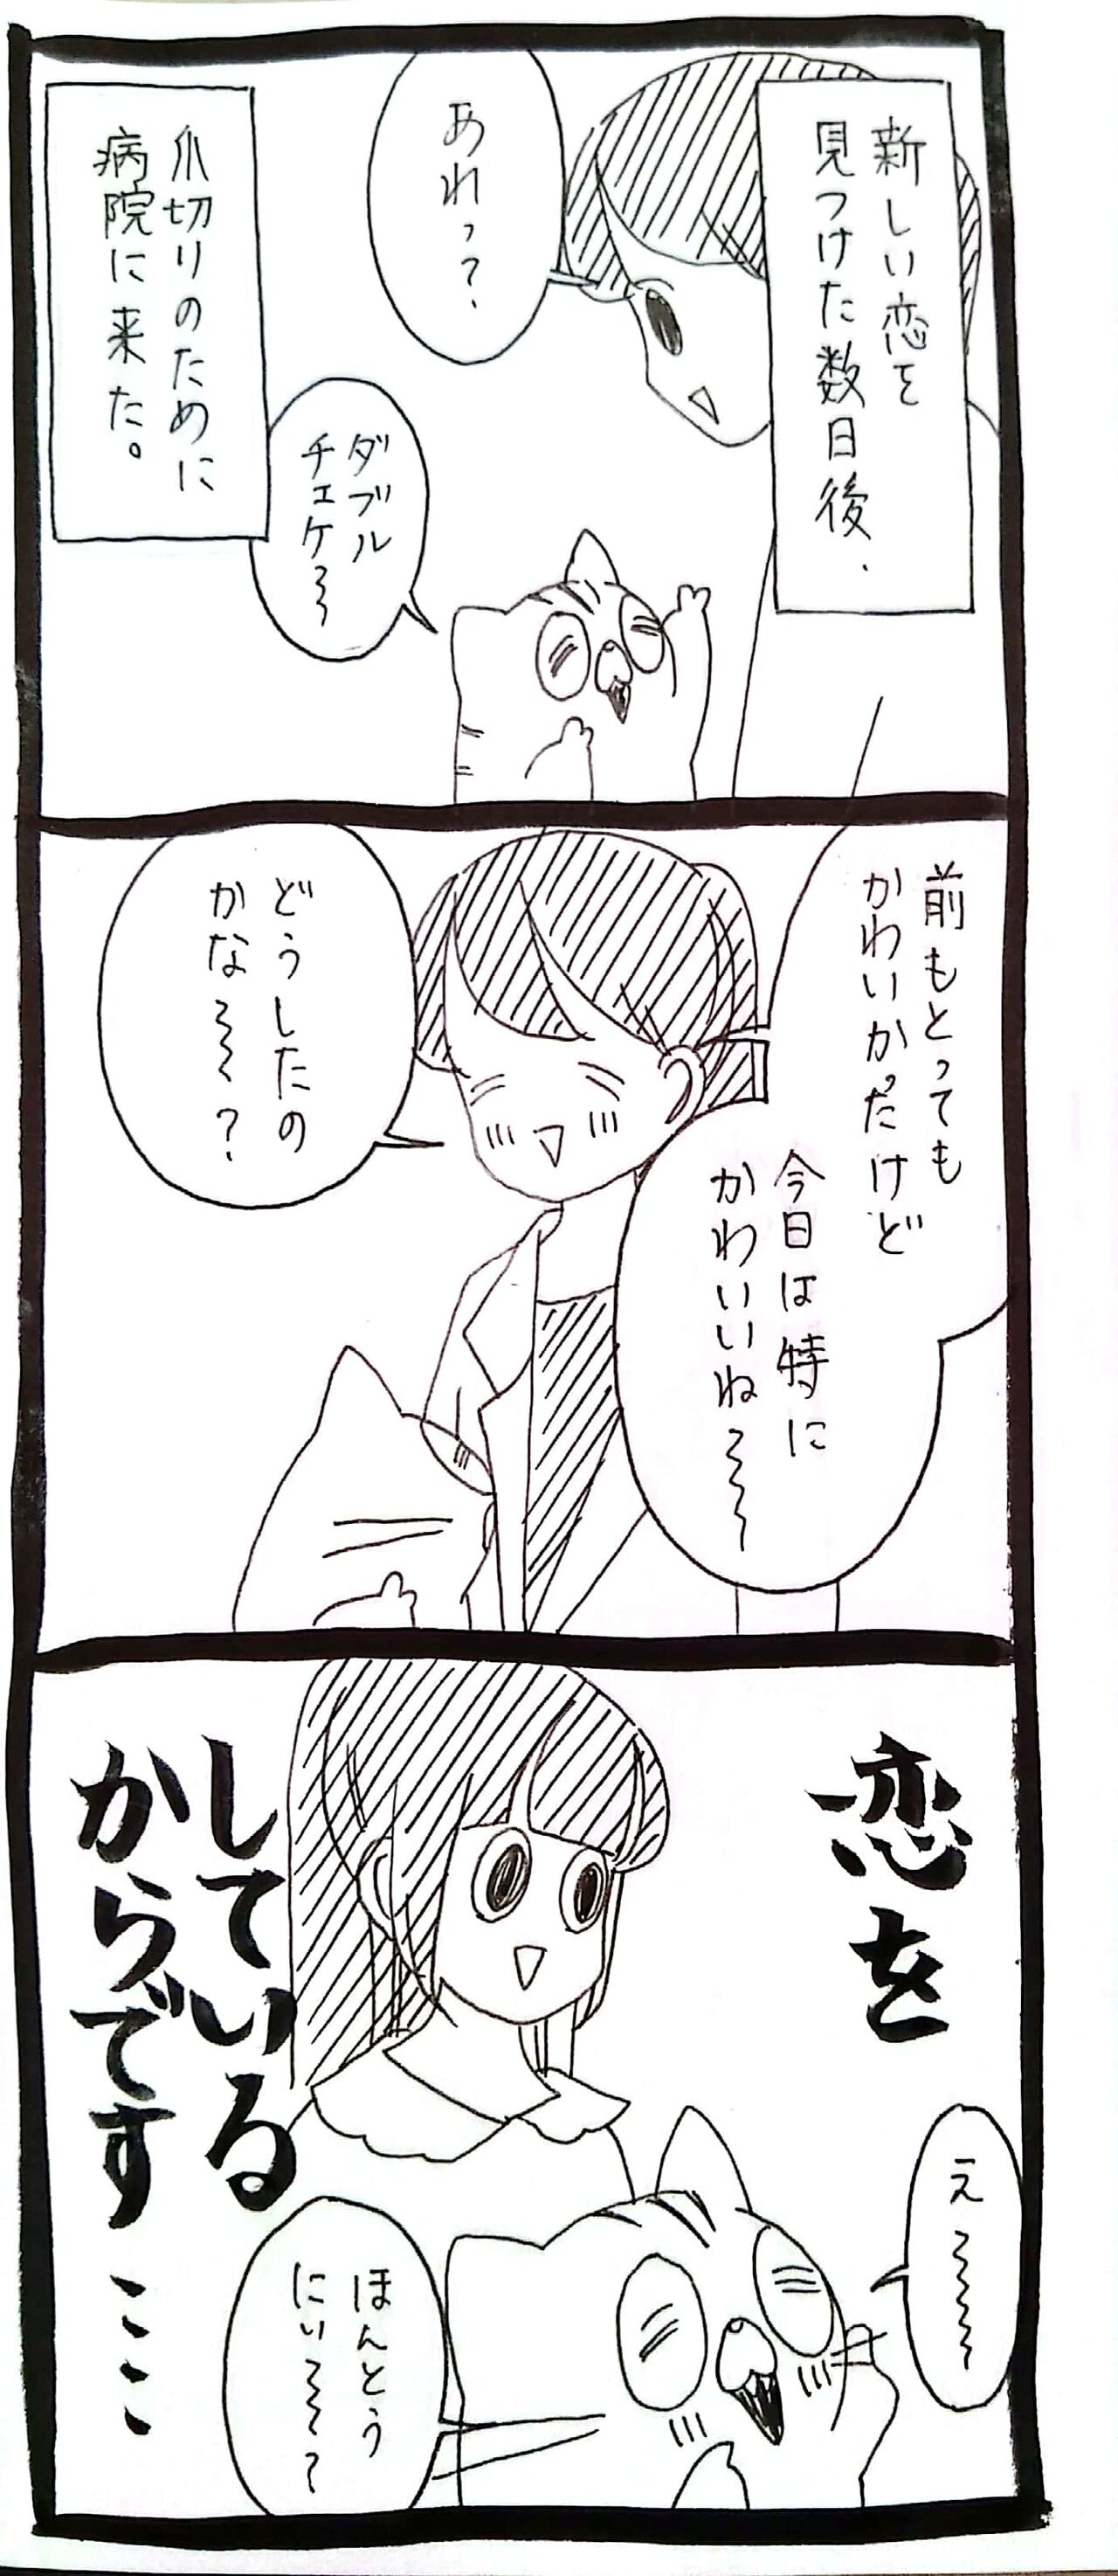 新しい恋を
見つけた数日後、
あれっ？
ダブル
チェケ〜〜
爪切りのために
病院に来た。
前もとっても
かわいかったけど
今日は特に
かわいいね〜〜〜
どうしたの
かな〜〜〜？
恋を
している
からです・・・
え〜〜〜〜
ほんとう
にぃ〜〜〜？